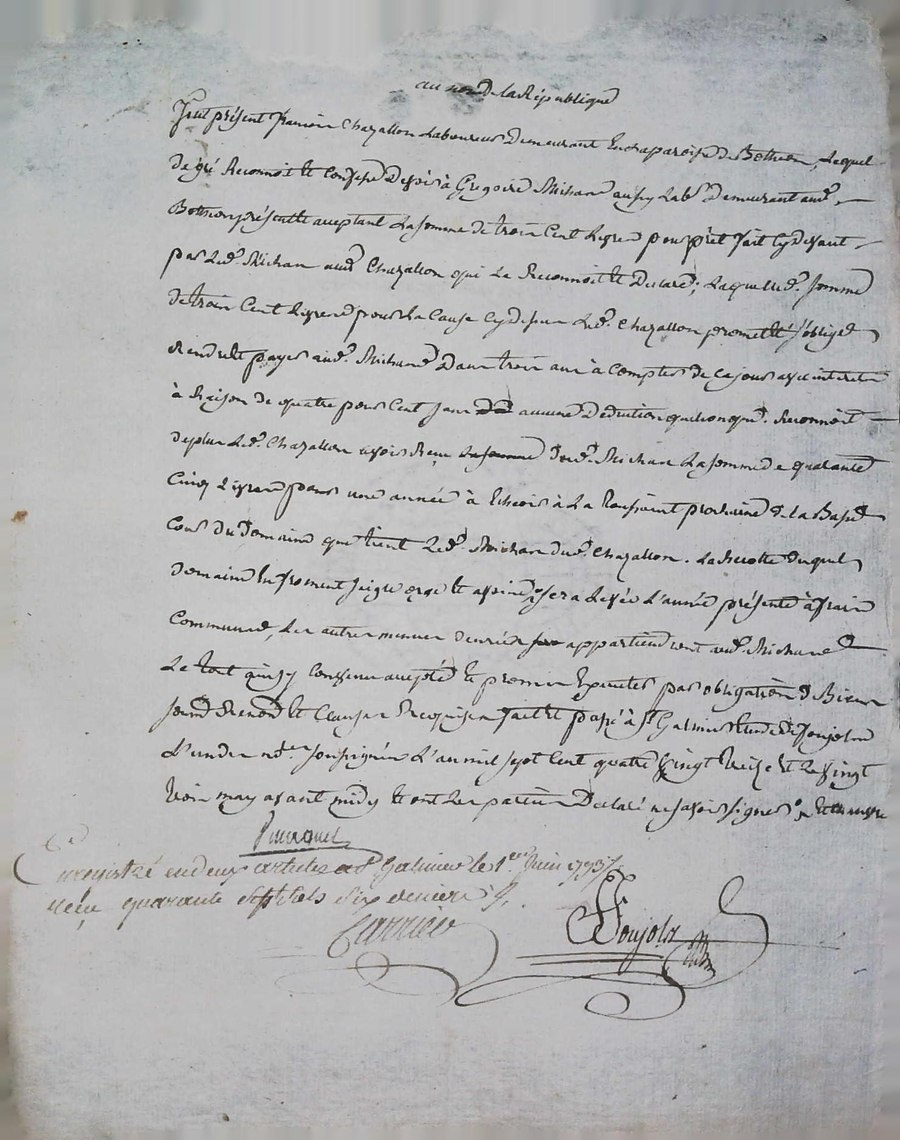 au nom de la République
fut présent françois Chazallon Laboureur Demeurant En la paroisse de Bothéon, Lequel
de gré Reconnoit et Confesse devoir à Gregoire Michan aussy Labr Demeurant aud.
Bothéon présent et acceptant La somme de trois Cent Livres pour prêt fait Cy devant
par Led. Michan aud Chazallon qui Le Reconnoit et Declare; Laquelle d. somme
de trois Cent Livres pour La Cause Cy dessus Led. Chazallon promet et s'oblige
Rendre et payer aud. Michan Dans trois ans à Compter de Ce jour avec interets
à Raison de quatre pour Cent sans aucune Deduction quelconque. Reconnoit
de plus Led. Chazallon avoir Reçu la somme Dud. Michan La somme de quarante
Cinq Livres pour une année à Echeoir à La Toussaint prochaine de la Basse
Cour du Domaine que tient Led. Michan dud. Chazallon. La Recolte duquel
Domaine En froment seigle orge et avoine sera Levée L'année présente à frais
Communs, Les autres menues denrées appartiendront aud. Michan
Le tout ainsy Convenu accepté et promis Executer par obligation de Biens
soumis Renon. et Clauses Requises fait et passé à St Galmier Etude de Soujols
L'un des no.res soussignés L'an mil sept Cent quatre vingt treize et Le vingt
trois may avant midy et ont Les parties Declaré ne savoir signer
Enregistré en deux articles a St Galmier le 1er Juin 1793
reçu quarante sept sols six deniers
Carrier
Soujols